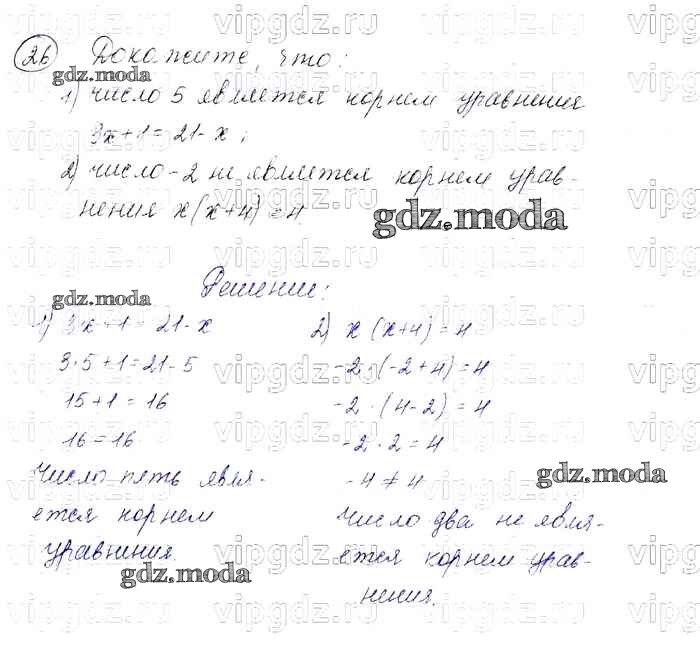 26 Докажите, что:
gdz.moda
1) число 5 является корнем уравнения
3x+1=21-x;
2) число -2 не является корнем урав-
нения x(x+4)=4
gdz.moda
Решение:
gdz.moda
1) 3x+1=21-x
3·5+1=21-5
15+1=16
16=16
Число пять явля-
ется корнем
уравнения.
gdz.moda
2) x(x+4)=4
-2·(-2+4)=4
-2·(4-2)=4
-2·2=4
-4≠4
gdz.moda
Число два не явля-
ется корнем урав-
нения.
vipgdz.ru